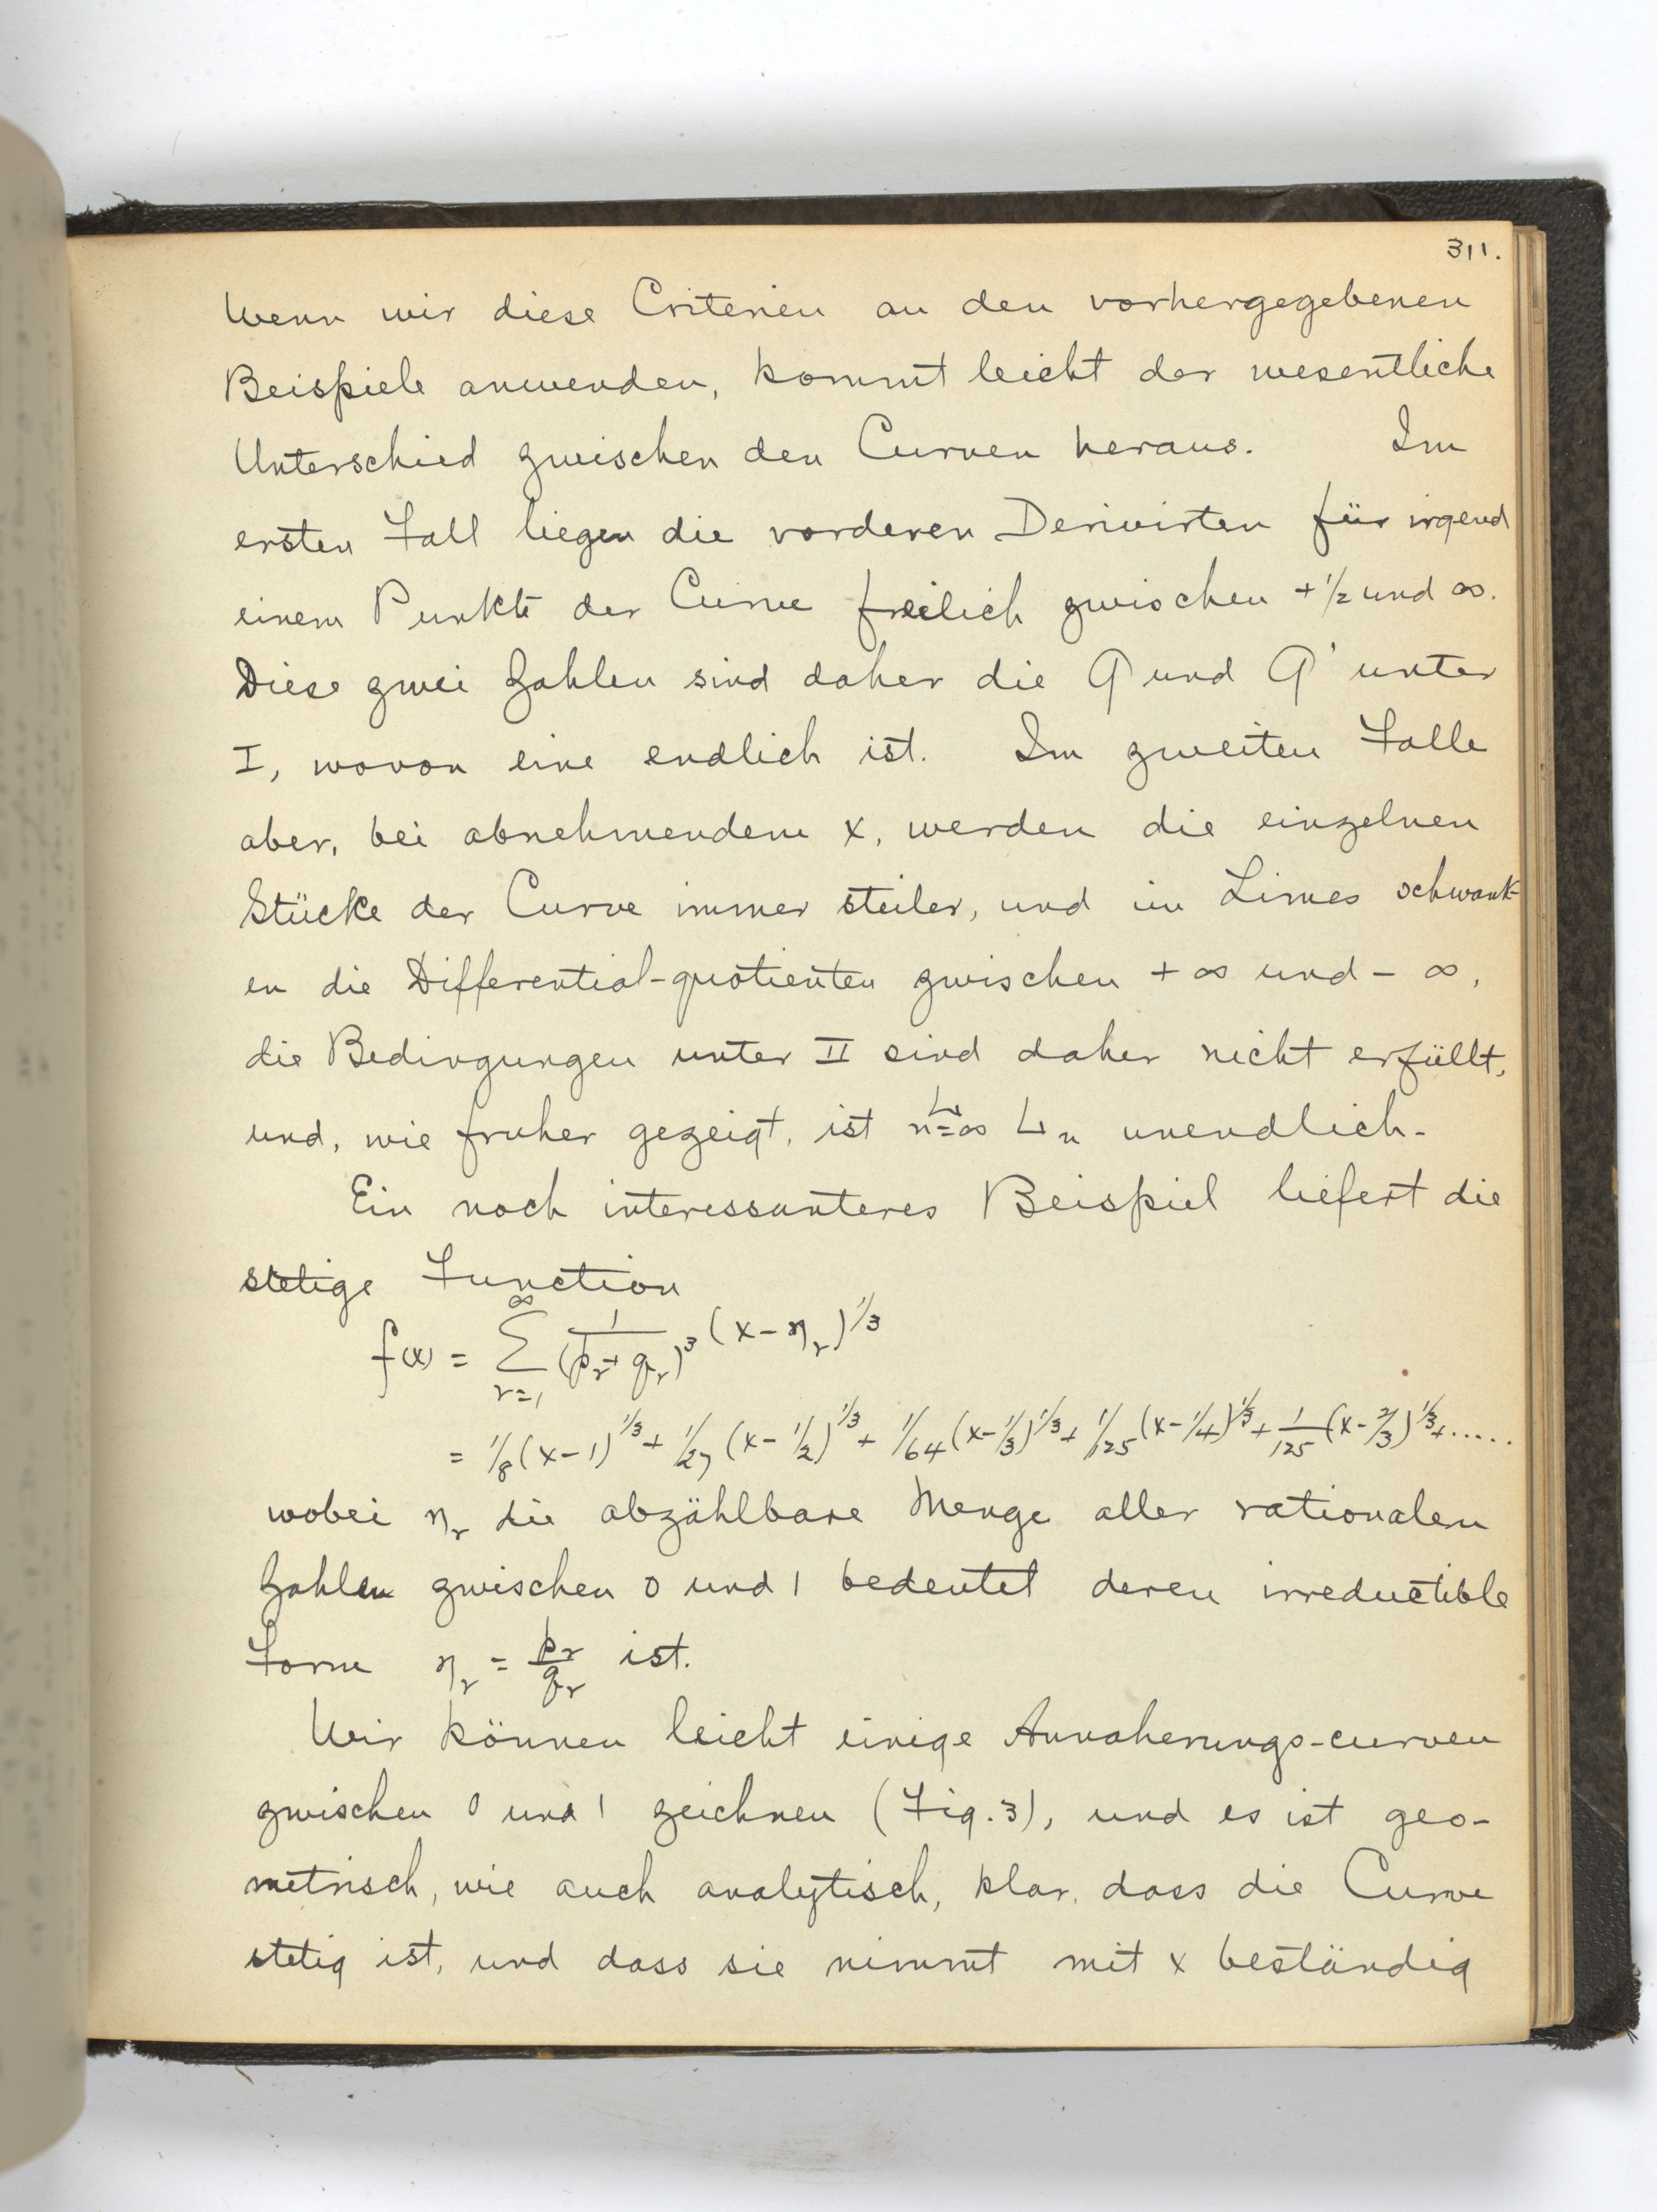 311.
Wenn wir diese Criterien an den vorhergegebenen
Beispiele anwenden, kommt leicht der wesentliche
Unterschied zwischen den Curven heraus. Im
ersten Fall liegen die vorderen Derivirten für irgend
einem Punkte der Curve freilich zwischen + 1/2 und ∞.
Diese zwei Zahlen sind daher die G und G' unter
I, wovon eine endlich ist. Im zweiten Falle
aber, bei abnehmendem x, werden die einzelnen
Stücke der Curve immer steiler, und im Limes schwank-
en die Differential-quotienten zwischen + ∞ und - ∞,
die Bedingungen unter II sind daher nicht erfüllt,
und, wie fruher gezeigt, ist L n=∞ L_n unendlich.
Ein noch interessanteres Beispiel liefert die
stetige Function
f(x) = ∑_{r=1}^{∞} 1/(p_r + q_r)^3 (x - η_r)^{1/3}
= 1/8 (x-1)^{1/3} + 1/27 (x - 1/2)^{1/3} + 1/64 (x - 1/3)^{1/3} + 1/125 (x - 1/4)^{1/3} + 1/125 (x - 2/3)^{1/3} + .....
wobei η_r die abzählbare Menge aller rationalen
Zahlen zwischen 0 und 1 bedeutet deren irreductible
Form η_r = p_r/q_r ist.
Wir können leicht einige Annaherungs-curven
zwischen 0 und 1 zeichnen (Fig. 3), und es ist geo-
metrisch, wie auch analytisch, klar, dass die Curve
stetig ist, und dass sie nimmt mit x beständig